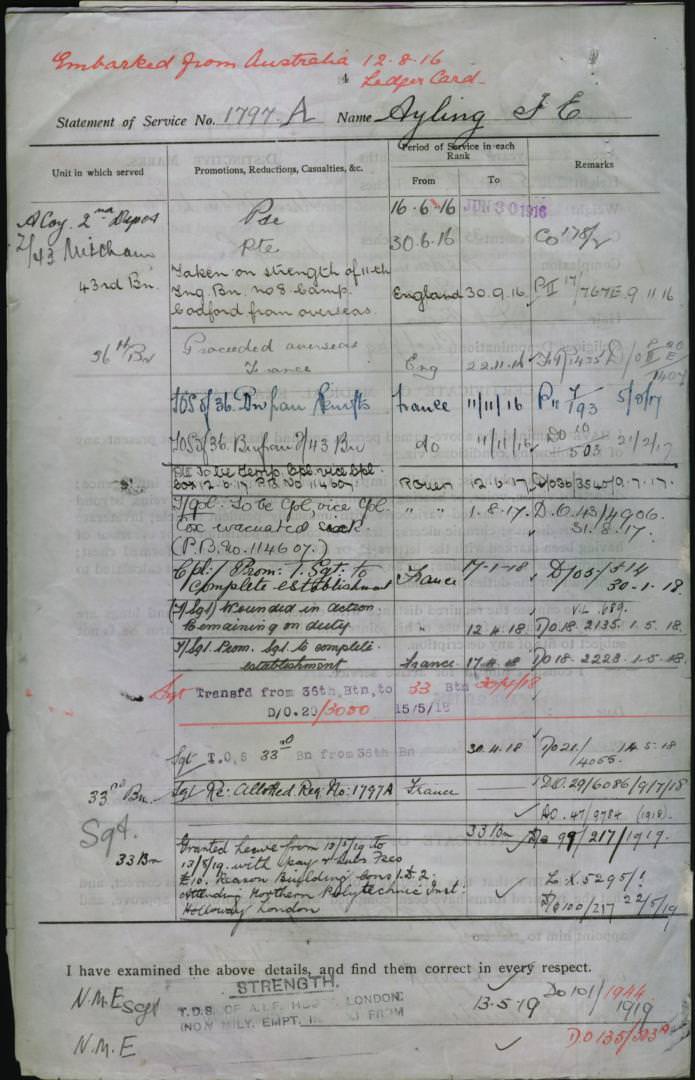 Embarked from Australia 12.8.16
4 Ledger Card
Statement of Service No. 1797 A Name Ayling F E
Unit in which served
Promotions, Reductions, Casualties, &c.
Period of Service in each Rank
From To
Remarks
A Coy. 2nd Depot Pte 16.6.16 JUN 30 1916
2/43 Mitcham Pte 30.6.16 Co 178/2
43rd Bn. Taken on strength of 11th
Trng. Bn. No 8 Camp. England 30.9.16 P II 17/767E. 9 11 16
Codford from overseas.
36th Bn Proceeded overseas
France Eng 22.11.16
TOS of 36. Bn from Reinfts France 11/11/16 5/2/17
TOS 36. Bn from 2/43 Bn do 11/11/16 DO 10/503 21/2/17
Pte To be Temp. Cpl. vice Cpl.
Cox 12.6.17. P.B. No 114607. Rouen 12.6.17
T/Cpl. To be Cpl, vice Cpl. " " 1.8.17. D.O. 143/4906.
Cox evacuated sick. 31.8.17.
(P.B. No. 114607.)
Cpl. Prom: T. Sgt. to France 17.1.18
complete establishment 30.1.18.
(T/Sgt) Wounded in action V.L. 689.
Remaining on duty " 12.4.18 DO 18. 2135. 1.5.18.
T/Sgt. Prom. Sgt. to complete
establishment France 17.4.18 DO 18. 2228. 1.5.18.
Sgt Transfd from 36th, Btn, to 33 Btn 30/4/18
D/O. 29/3050 15/5/18
Sgt T.O.S 33rd Bn from 36th Bn 30.4.18 DO 21/4055. 14.5.18
33rd Bn. Sgt Re: Alloted. Reg. No: 1797A France DO. 29/6086/9/7/18
DO. 47/9784 (1918).
Sgt. 33 Bn Do 99/217/1919.
33 Bn Granted leave from 13/5/19 to
13/8/19. with pay & Subs Fees
£10. Reason Building Cons L.X. 5295/1
attending Northern Polytechnic Inst: Do 100/217 22/5/19
Holloway London
I have examined the above details, and find them correct in every respect.
STRENGTH.
N.M.E Sgt T.D.S. OF A.I.F. LONDON 13.5.19 Do 101/1944
(NON MILY. EMPT. FROM 1919
N.M.E D.O 135/